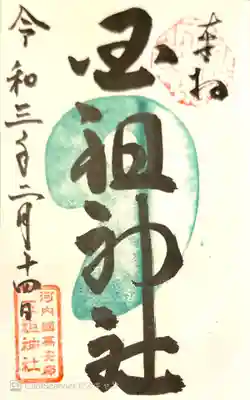 奉拝
玉祖神社
令和三年二月十四日
河内國高安
玉祖神社
CamScanner